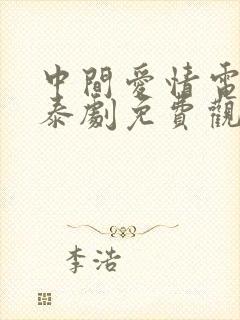 中間愛情電
泰劇免費觀
李浩